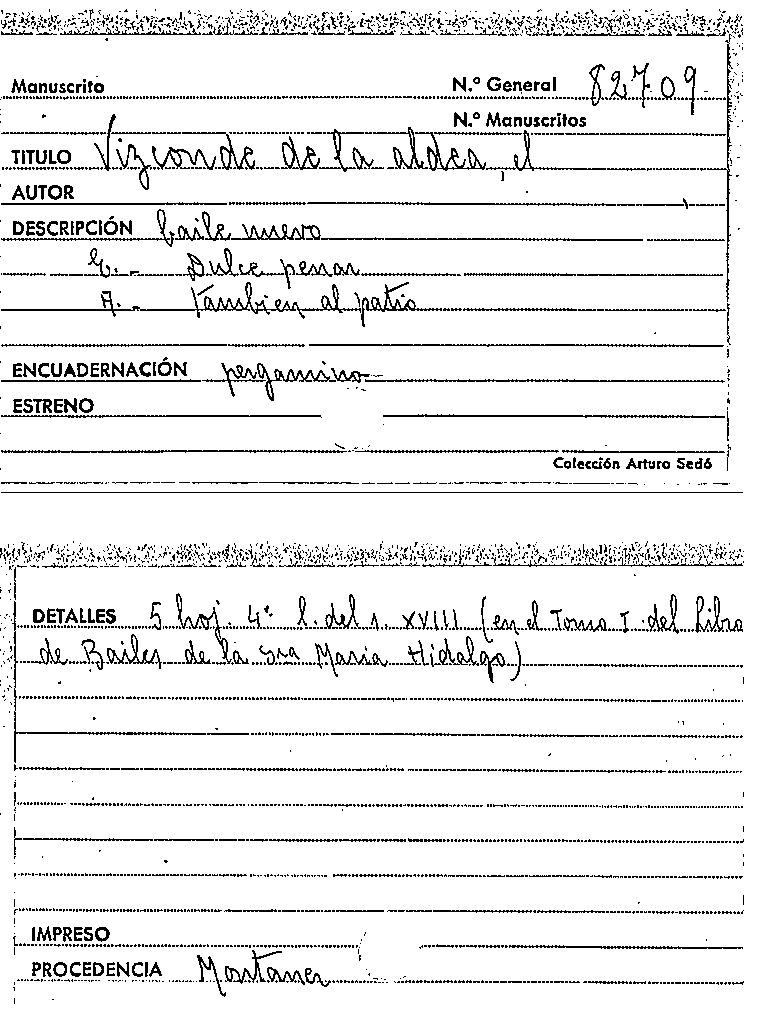 Manuscrito N.º General 82709
N.º Manuscritos
TITULO Vizconde de la aldea, el
AUTOR
DESCRIPCIÓN baile nuevo
E.- Dulce penar
A.- También al patio
ENCUADERNACIÓN pergamino
ESTRENO
Colección Arturo Sedó
DETALLES 5 hoj. 4º l. del s. XVIII (en el Tomo I del Libro
de Bailes de la Sra Maria Hidalgo)
IMPRESO
PROCEDENCIA Montaner